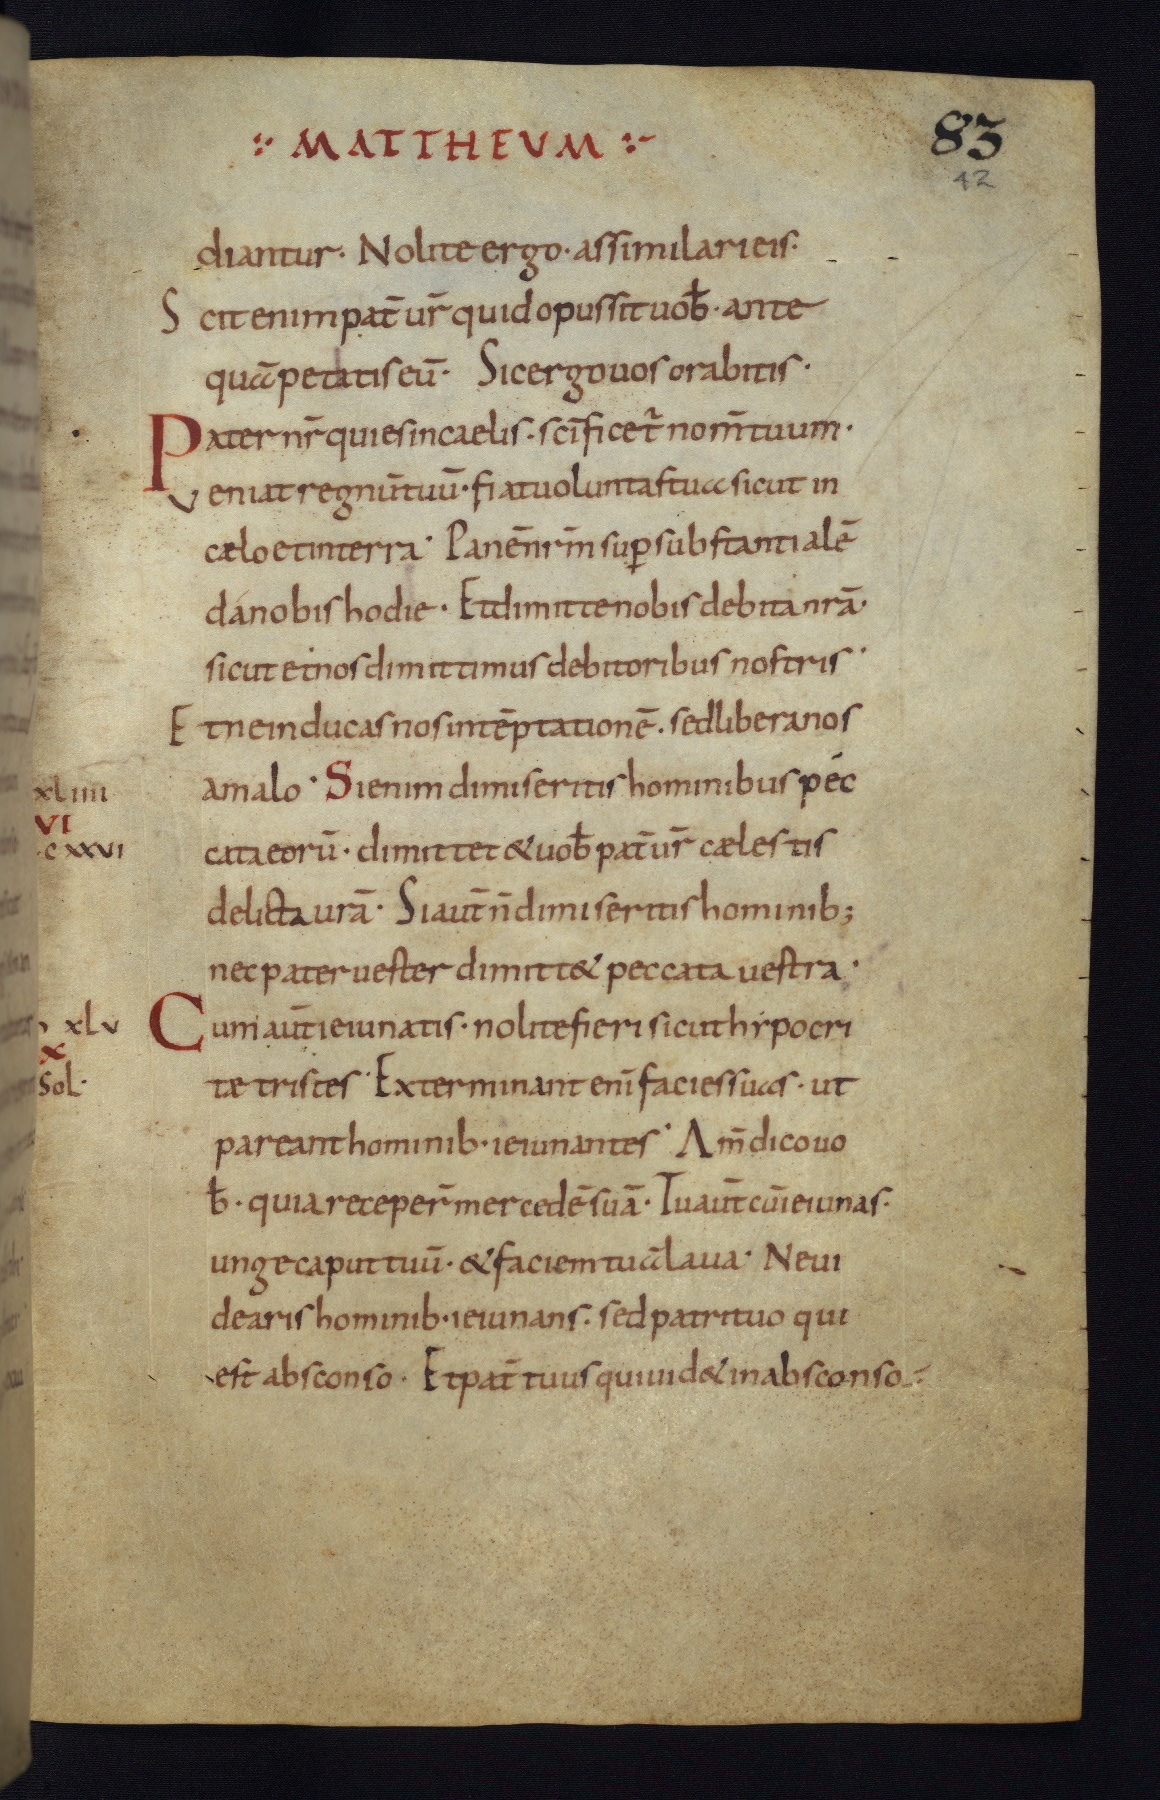 ·:· MATTHEVM ·:·
83
42
diantur· Nolite ergo· assimilari eis·
Scit enim pat̄ ur̄ quid opus sit uob̄· ante
quā petatis eū· Sic ergo uos orabitis·
Pater nr̄ qui es in caelis· sc̄ificet̄ nom̄ tuum·
Veniat regnū tuū· fiat uoluntas tua sicut in
cælo et in terra· Panē nr̄m sup̄substantialē
da nobis hodie· Et dimitte nobis debita nr̄a·
sicut et nos dimittimus debitoribus nostris·
Et ne inducas nos in tēptationē· sed libera nos
xliiii
VI
·cxxvi
a malo· Si enim dimiseritis hominibus pec
cata eorū· dimittet & uob̄ pat̄ ur̄ cælestis
delicta ur̄a· Si aut̄ n̄ dimiseritis hominib;
nec pater uester dimitt& peccata uestra·
xlv
X
Sol·
Cum aut̄ ieiunatis· nolite fieri sicut hypocri
tæ tristes· Exterminant enī facies suas· ut
pareant hominib· ieiunantes· Am̄ dico uo
b̄· quia receper̄ mercedē suā· Tu aut̄ cū ieiunas·
unge caput tuū· & faciem tuā laua· Ne ui
dearis hominib· ieiunans· sed patri tuo qui
est absconso· Et pat̄ tuus qui uid& in absconso·